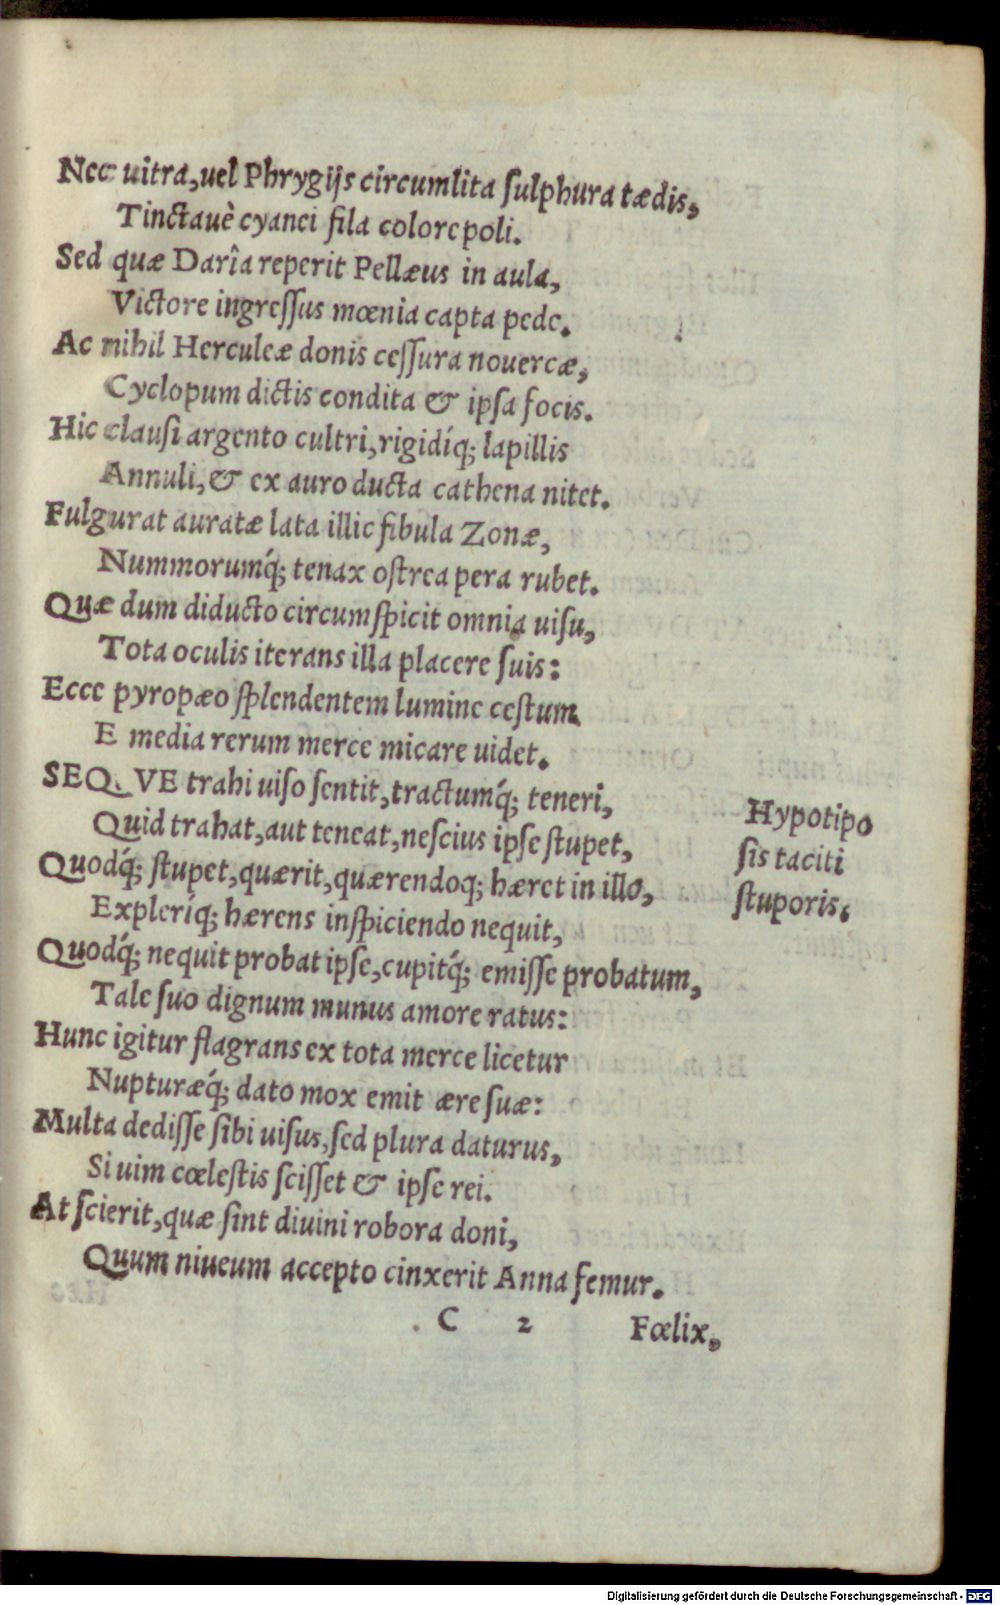 Nec uitra, uel Phrygijs circumlita sulphura tædis,
Tinctauè cyanei fila colore poli.
Sed quæ Darîa reperit Pellæus in aula,
Victore ingressus mœnia capta pede.
Ac nihil Herculeæ donis cessura nouercæ,
Cyclopum dictis condita & ipsa focis.
Hic clausi argento cultri, rigidíq; lapillis
Annuli, & ex auro ducta cathena nitet.
Fulgurat auratæ lata illic fibula Zonæ,
Nummorumq́; tenax ostrea pera rubet.
Quæ dum diducto circumspicit omnia uisu,
Tota oculis iterans illa placere suis:
Ecce pyropæo splendentem lumine cestum
E media rerum merce micare uidet.
SEQVE trahi uiso sentit, tractumq́; teneri,
Quid trahat, aut teneat, nescius ipse stupet,
Quodq́; stupet, quærit, quærendoq; hæret in illo,
Expleríq; hærens inspiciendo nequit,
Quodq́; nequit probat ipse, cupitq́; emisse probatum,
Tale suo dignum munus amore ratus:
Hunc igitur flagrans ex tota merce licetur
Nupturæq́; dato mox emit ære suæ:
Multa dedisse sibi uisus, sed plura daturus,
Si uim cœlestis scisset & ipse rei.
At scierit, quæ sint diuini robora doni,
Quum niueum accepto cinxerit Anna femur.
Hypotipo
sis taciti
stuporis.
C 2 Fœlix,
Digitalisierung gefördert durch die Deutsche Forschungsgemeinschaft - DFG